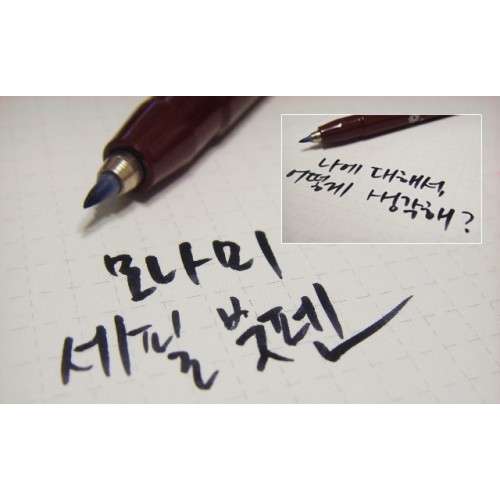 모나미
세필 붓펜
나에 대해서,
어떻게 생각해?